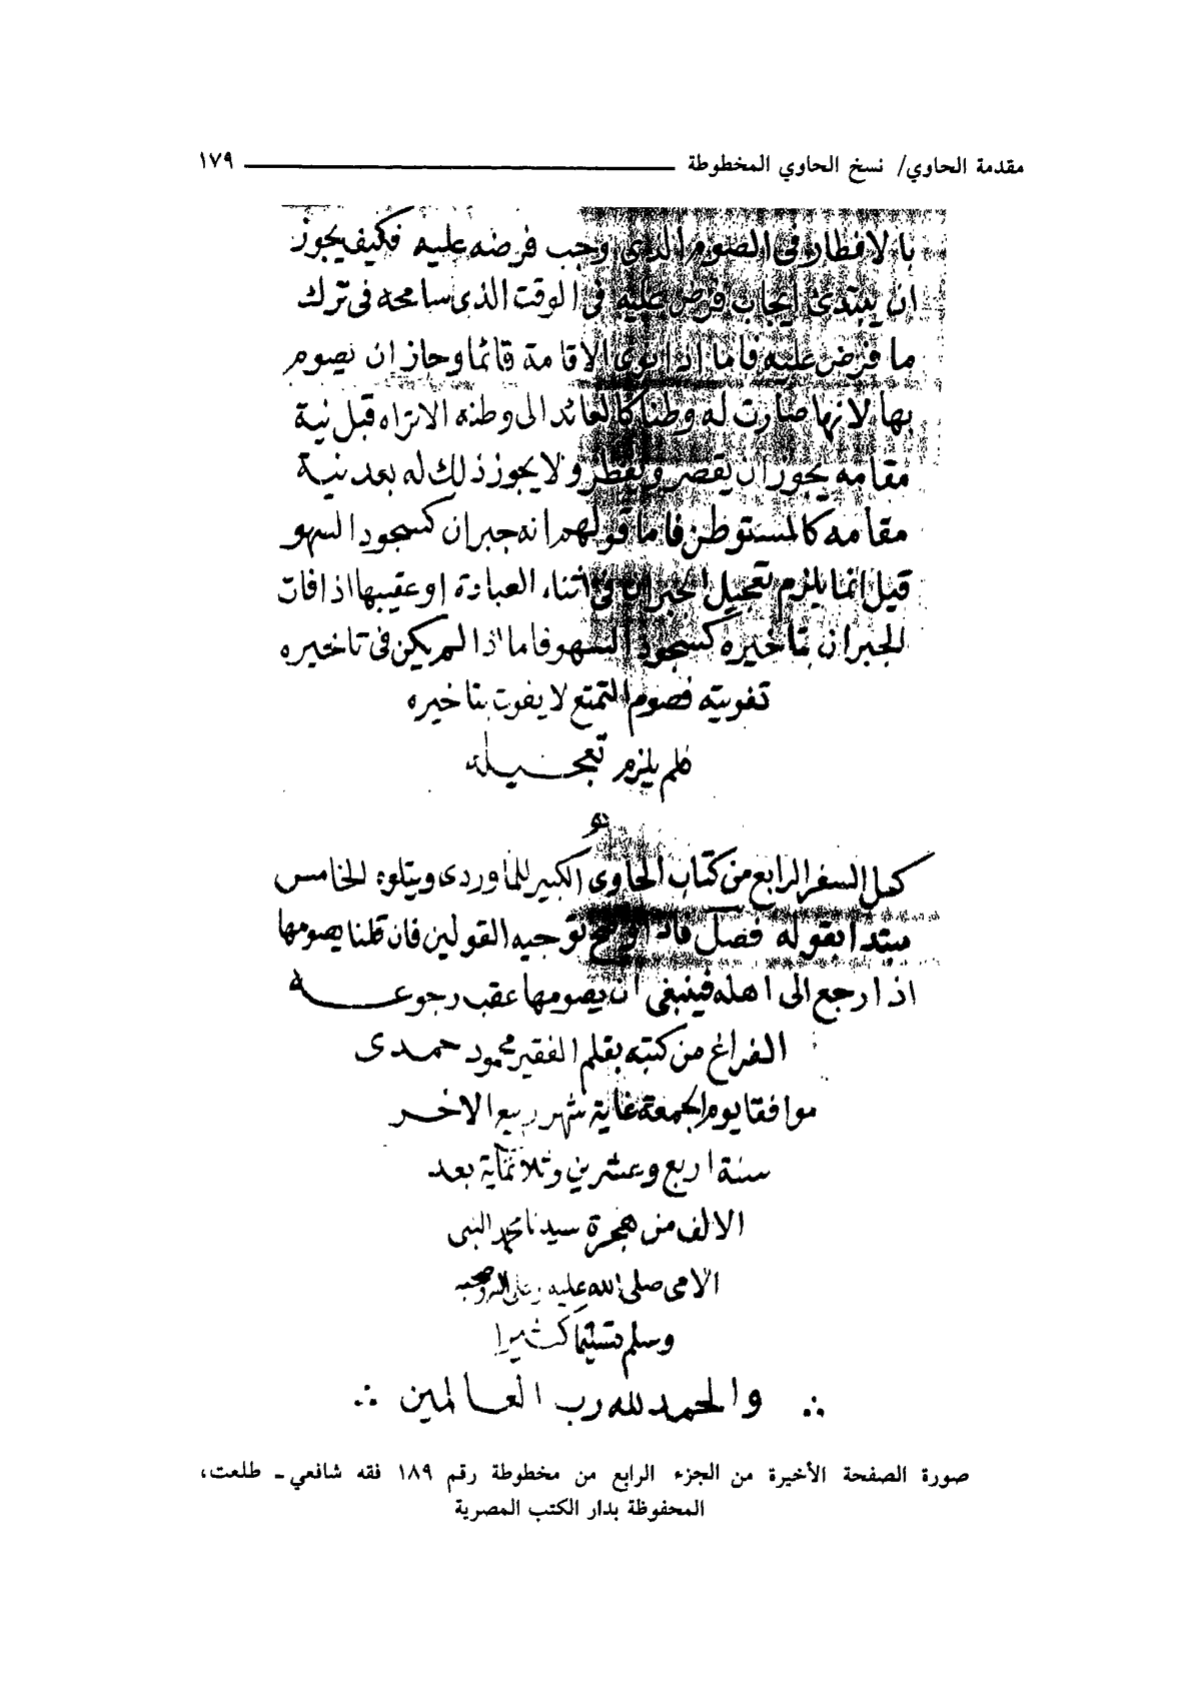 مقدمة الحاوي/ نسخ الحاوي المخطوطة ١٧٩
بالافطار في الصوم الذي وجب فرضه عليه فكيف يجوز
ان يبتدئ ايجاب فرض عليه في الوقت الذي سامحه في ترك
ما فرض عليه فاما اذا نوى الاقامة قائما وجاز ان يصوم
بها لانها صارت له وطنا كالعائد الى وطنه الا تراه قبل نية
مقامه يجوز ان يقصر ويفطر ولا يجوز ذلك له بعد نية
مقامه كالمستوطن فاما قولهم انه جبران كسجود السهو
قيل انما يلزم تعجيل الجبران في اثناء العبادة او عقيبها اذا فات
الجبران بتاخيره كسجود السهو فاما اذا لم يكن في تاخيره
تفويته فصوم التمتع لا يفوت بتاخيره
فلم يلزم تعجيله
كمل السفر الرابع من كتاب الحاوى الكبير للماوردى ويتلوه الخامس
مبتدا بقوله فصل فاذا وضح توجيه القولين فان قلنا يصومها
اذا رجع الى اهله فينبغى ان يصومها عقب رجوعه
الفراغ من كتبه بقلم الفقير محمود حمدى
موافقا يوم الجمعة غاية شهر ربيع الاخر
سنة اربع وعشرين وثلاثماية بعد
الالف من هجرة سيدنا محمد النبى
الامى صلى الله عليه وعلى اله وصحبه
وسلم تسليما كثيرا
∴ والحمد لله رب العالمين ∴
صورة الصفحة الأخيرة من الجزء الرابع من مخطوطة رقم ١٨٩ فقه شافعي ـ طلعت،
المحفوظة بدار الكتب المصرية